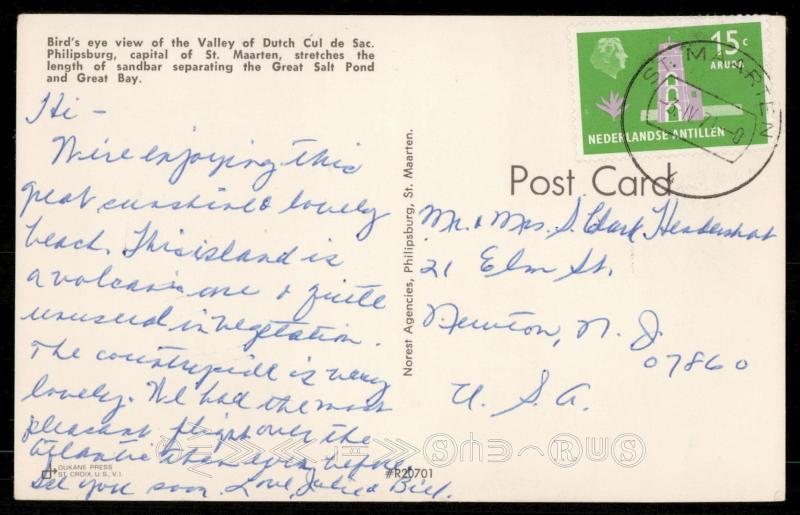 Bird's eye view of the Valley of Dutch Cul de Sac.
Philipsburg, capital of St. Maarten, stretches the
length of sandbar separating the Great Salt Pond
and Great Bay.
Hi -
We're enjoying this
great sunshine & lovely
beach. This island is
a volcanic one & quite
unusual in vegetation.
The countryside is very
lovely. We had the most
pleasant flight over the
Atlantic than ever before.
See you soon. Love, Julie & Bill.
DUKANE PRESS
ST. CROIX, U.S., V.I.
#R20701
Norest Agencies, Philipsburg, St. Maarten.
15c
ARUBA
NEDERLANDSE ANTILLEN
ST. MAARTEN
Post Card
Mr. & Mrs. S. Clark Hendershot
21 Elm St.
Newton, N. J.
07860
U. S. A.